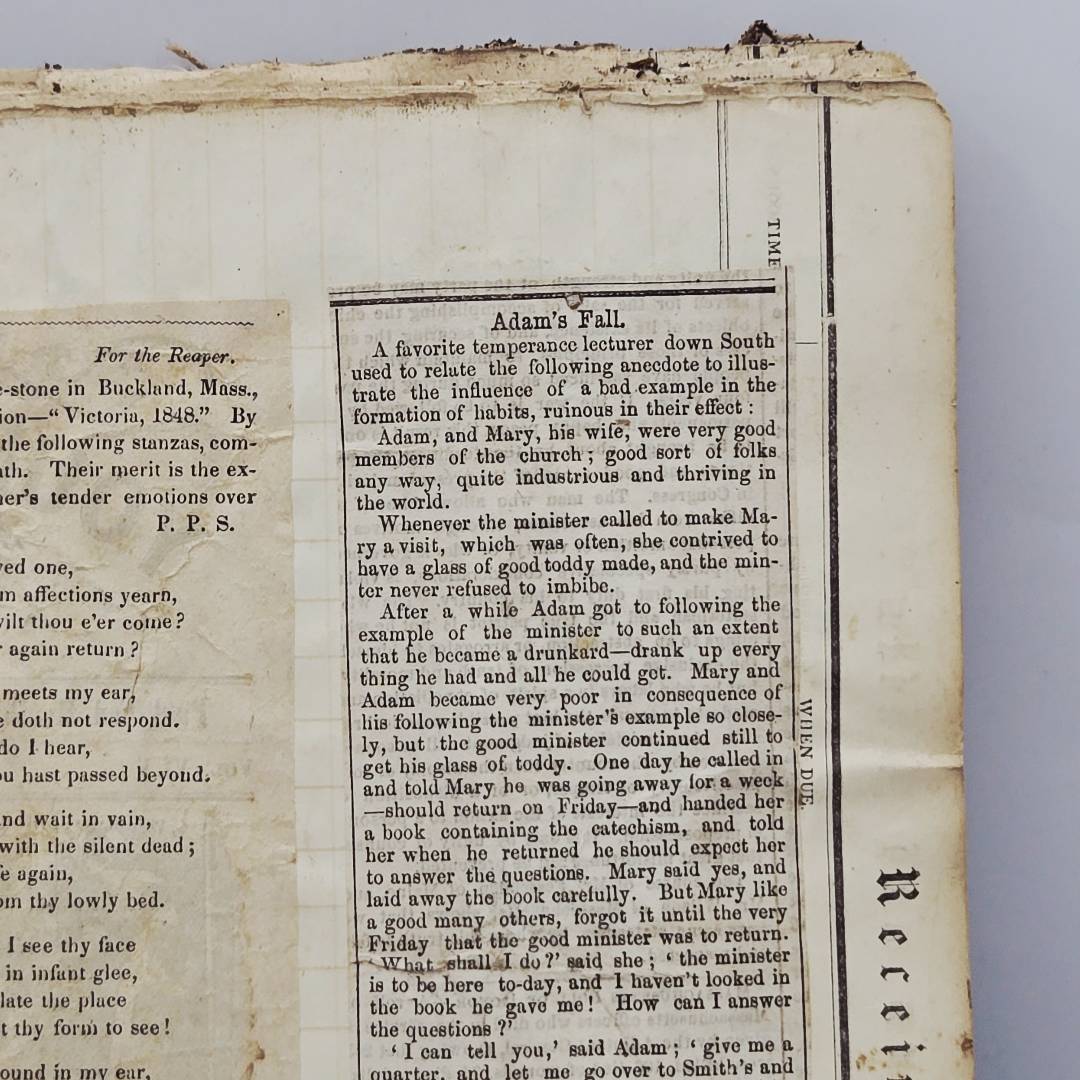 For the Reaper.
e-stone in Buckland, Mass.,
ion—“Victoria, 1848.” By
the following stanzas, com-
ath. Their merit is the ex-
er's tender emotions over
P. P. S.
ved one,
m affections yearn,
vilt thou e'er come?
again return?
meets my ear,
e doth not respond.
do I hear,
ou hast passed beyond.
nd wait in vain,
with the silent dead;
e again,
om thy lowly bed.
I see thy face
in infant glee,
late the place
t thy form to see!
ound in my ear,
Adam's Fall.
A favorite temperance lecturer down South
used to relate the following anecdote to illus-
trate the influence of a bad example in the
formation of habits, ruinous in their effect:
Adam, and Mary, his wife, were very good
members of the church; good sort of folks
any way, quite industrious and thriving in
the world.
Whenever the minister called to make Ma-
ry a visit, which was often, she contrived to
have a glass of good toddy made, and the min-
ter never refused to imbibe.
After a while Adam got to following the
example of the minister to such an extent
that he became a drunkard—drank up every
thing he had and all he could get. Mary and
Adam became very poor in consequence of
his following the minister's example so close-
ly, but the good minister continued still to
get his glass of toddy. One day he called in
and told Mary he was going away for a week
—should return on Friday—and handed her
a book containing the catechism, and told
her when he returned he should expect her
to answer the questions. Mary said yes, and
laid away the book carefully. But Mary like
a good many others, forgot it until the very
Friday that the good minister was to return.
‘What shall I do?’ said she; ‘the minister
is to be here to-day, and I haven't looked in
the book he gave me! How can I answer
the questions?’
‘I can tell you,’ said Adam; ‘give me a
quarter, and let me go over to Smith's and
TIME
WHEN DUE.
Recei